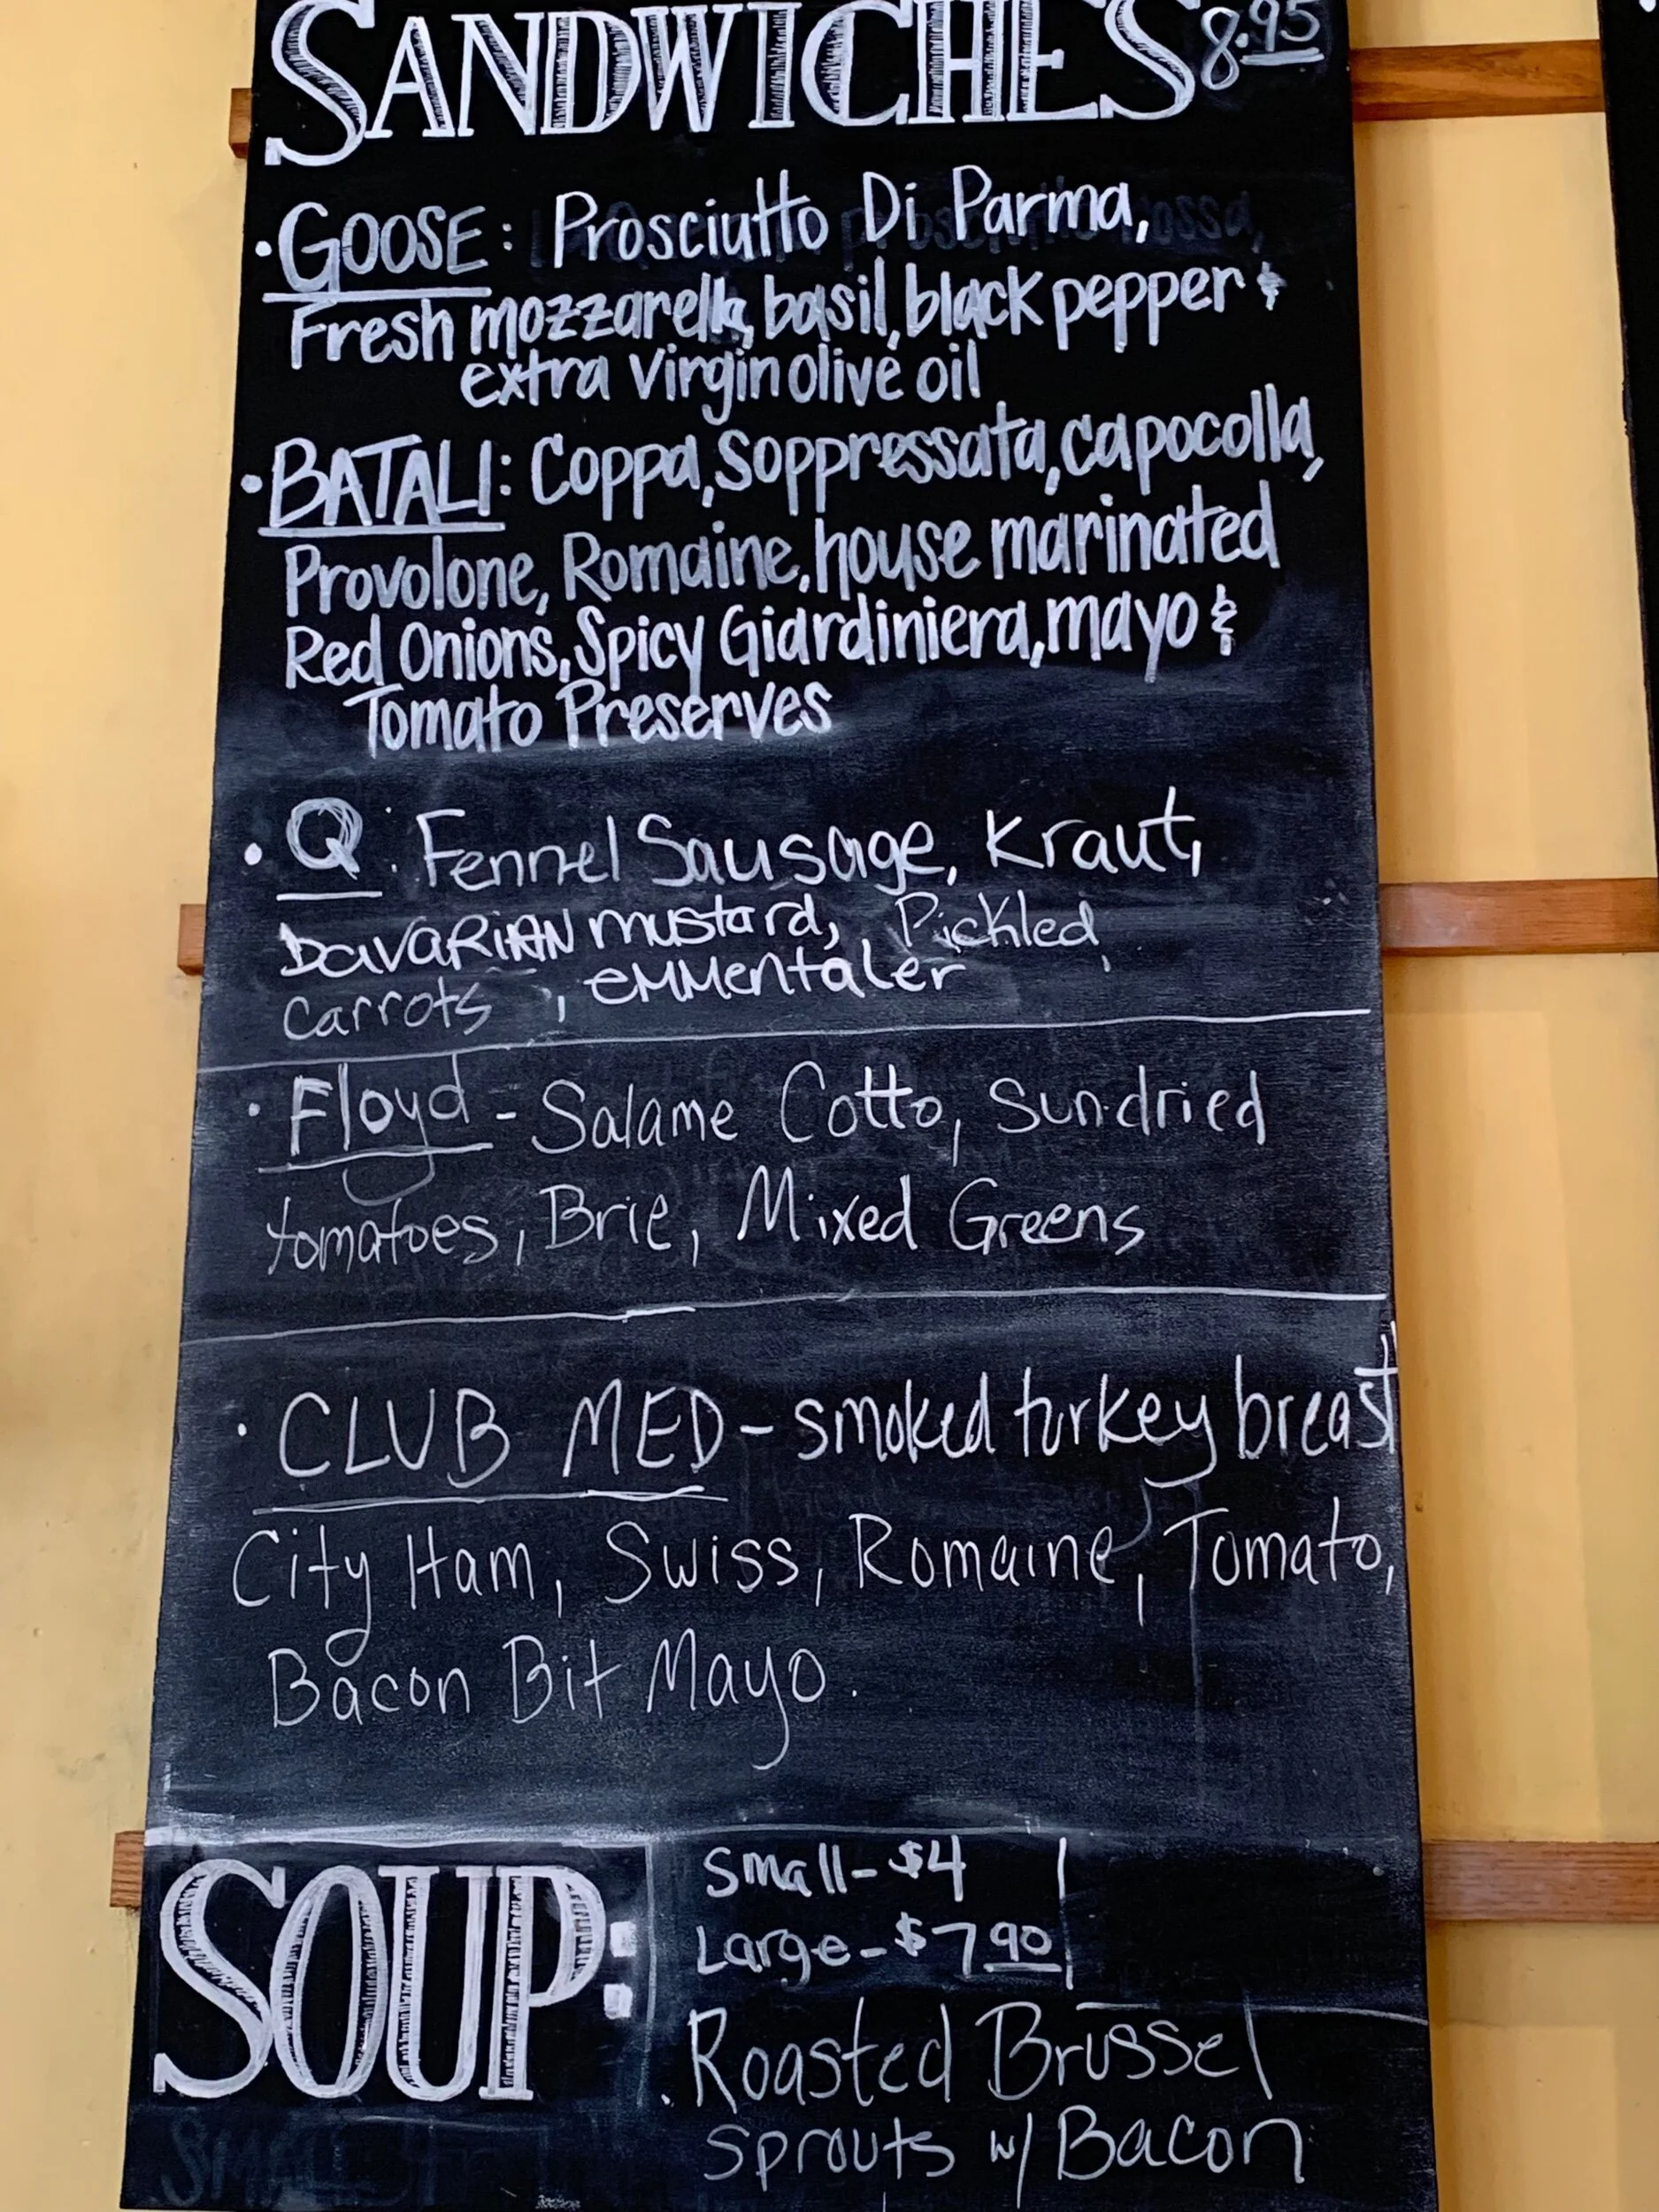 SANDWICHES 8.95
• GOOSE: Prosciutto Di Parma,
Fresh mozzarella, basil, black pepper &
extra virgin olive oil
• BATALI: Coppa, Soppressata, capocolla,
Provolone, Romaine, house marinated
Red Onions, Spicy Giardiniera, mayo &
Tomato Preserves
• Q: Fennel Sausage, Kraut,
BavaRiAN mustard, Pickled
Carrots, eMMentaler
• Floyd - Salame Cotto, Sun-dried
tomatoes, Brie, Mixed Greens
• CLUB MED - smoked turkey breast
City Ham, Swiss, Romaine, Tomato,
Bacon Bit Mayo.
SOUP:
Small - $4
Large - $7 90
. Roasted Brussel
Sprouts w/ Bacon